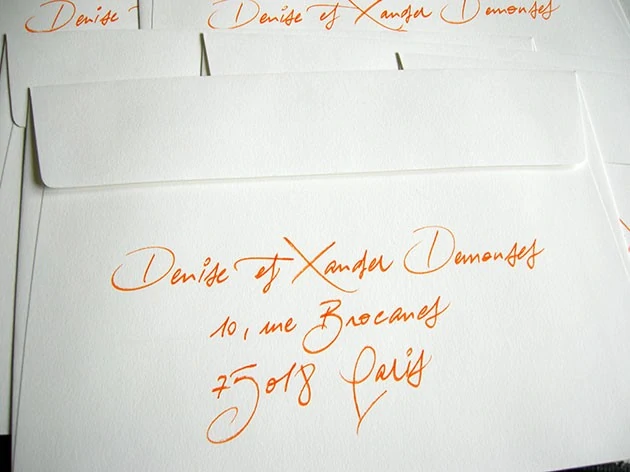 Denise
Denise et Xander Demonses
Denise et Xander Demonses
10, rue Brocanes
75018 Paris